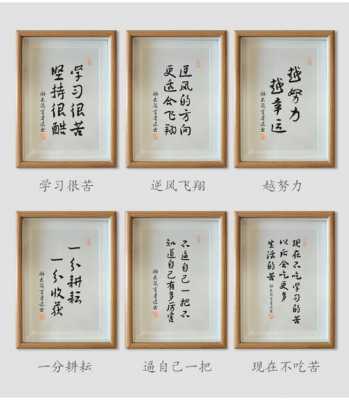 学习很苦
坚持很酷
学习很苦
逆风的方向
更适合飞翔
逆风飞翔
越努力
越幸运
越努力
一分耕耘
一分收获
一分耕耘
不逼自己一把
不知道自己有多厉害
逼自己一把
现在不吃学习的苦
以后会吃更多
生活的苦
现在不吃苦